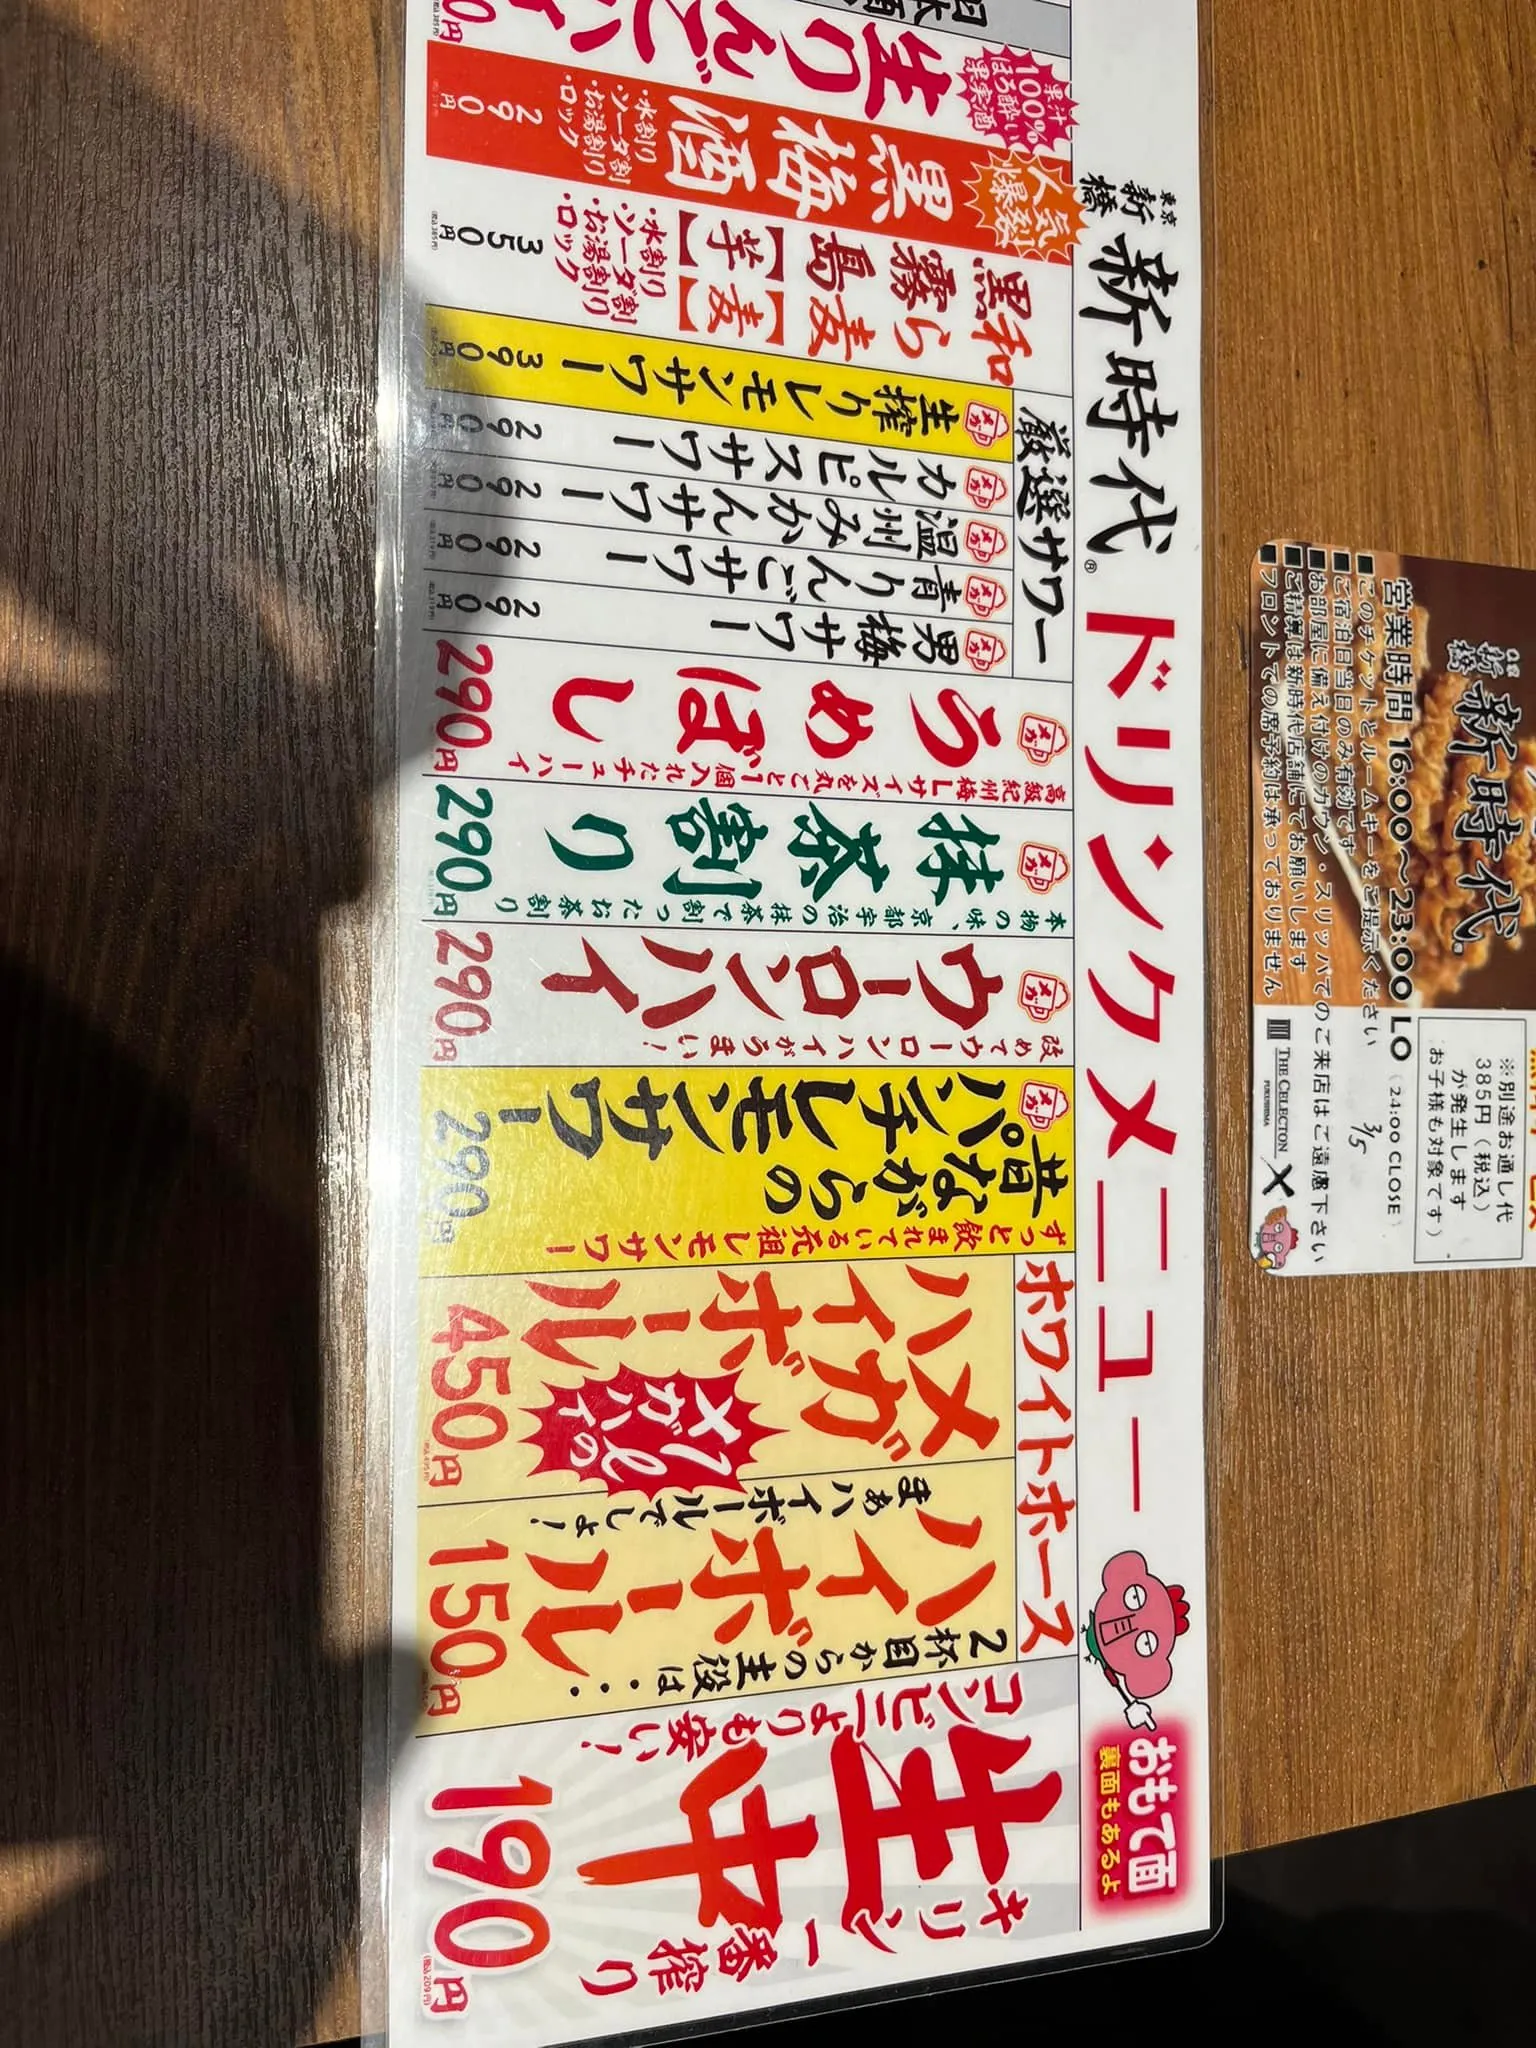 東京
新橋
新時代®
ドリンクメニュー
おもて面
裏面もあるよ
コンビニよりも安い!
生中
キリン一番搾り
190円
(税込209円)
ホワイトホース
2杯目からの主役は・・・
ハイボール
まぁハイボールでしょ!
150円
メガ
ハイボール
1ℓの
メガハイ
450円
昔ながらの
パンチレモンサワー
ずっと飲まれている元祖レモンサワー
290円
メガ
ウーロンハイ
改めてウーロンハイがうまい!
290円
メガ
抹茶割り
本物の味、京都宇治の抹茶で割ったお茶割り
290円
メガ
うめぼし
高級紀州梅Lサイズを丸ごと1個入れたチューハイ
290円
厳選サワー
メガ
男梅サワー
290円
メガ
青りんごサワー
290円
メガ
温州みかんサワー
290
メガ
カルピスサワー
290
メガ
生搾りレモンサワー
390円
和ら麦【麦】
黒霧島【芋】
・水割り
・ソーダ割
・お湯割り
・ロック
350円
(税込385円)
人気爆裂
黒梅酒
・水割り
・ソーダ割
・お湯割り
・ロック
290円
果汁
100%
ほろ酔い
果実酒
生りんごハ
0円
(税込385円)
日本酒
新橋
新時代
営業時間 16:00～23:00 LO (24:00 CLOSE)
■このチケットとルームキーをご提示ください
■ご宿泊日当日のみ有効です
■お部屋に備え付けのガウン・スリッパでのご来店はご遠慮下さい
■ご精算は新時代店舗にてお願いします
■フロントでの席予約は承っておりません
3/5
※別途お通し代
385円(税込)
が発生します
お子様も対象です)
THE CELECTON
FUKUSHIMA
×